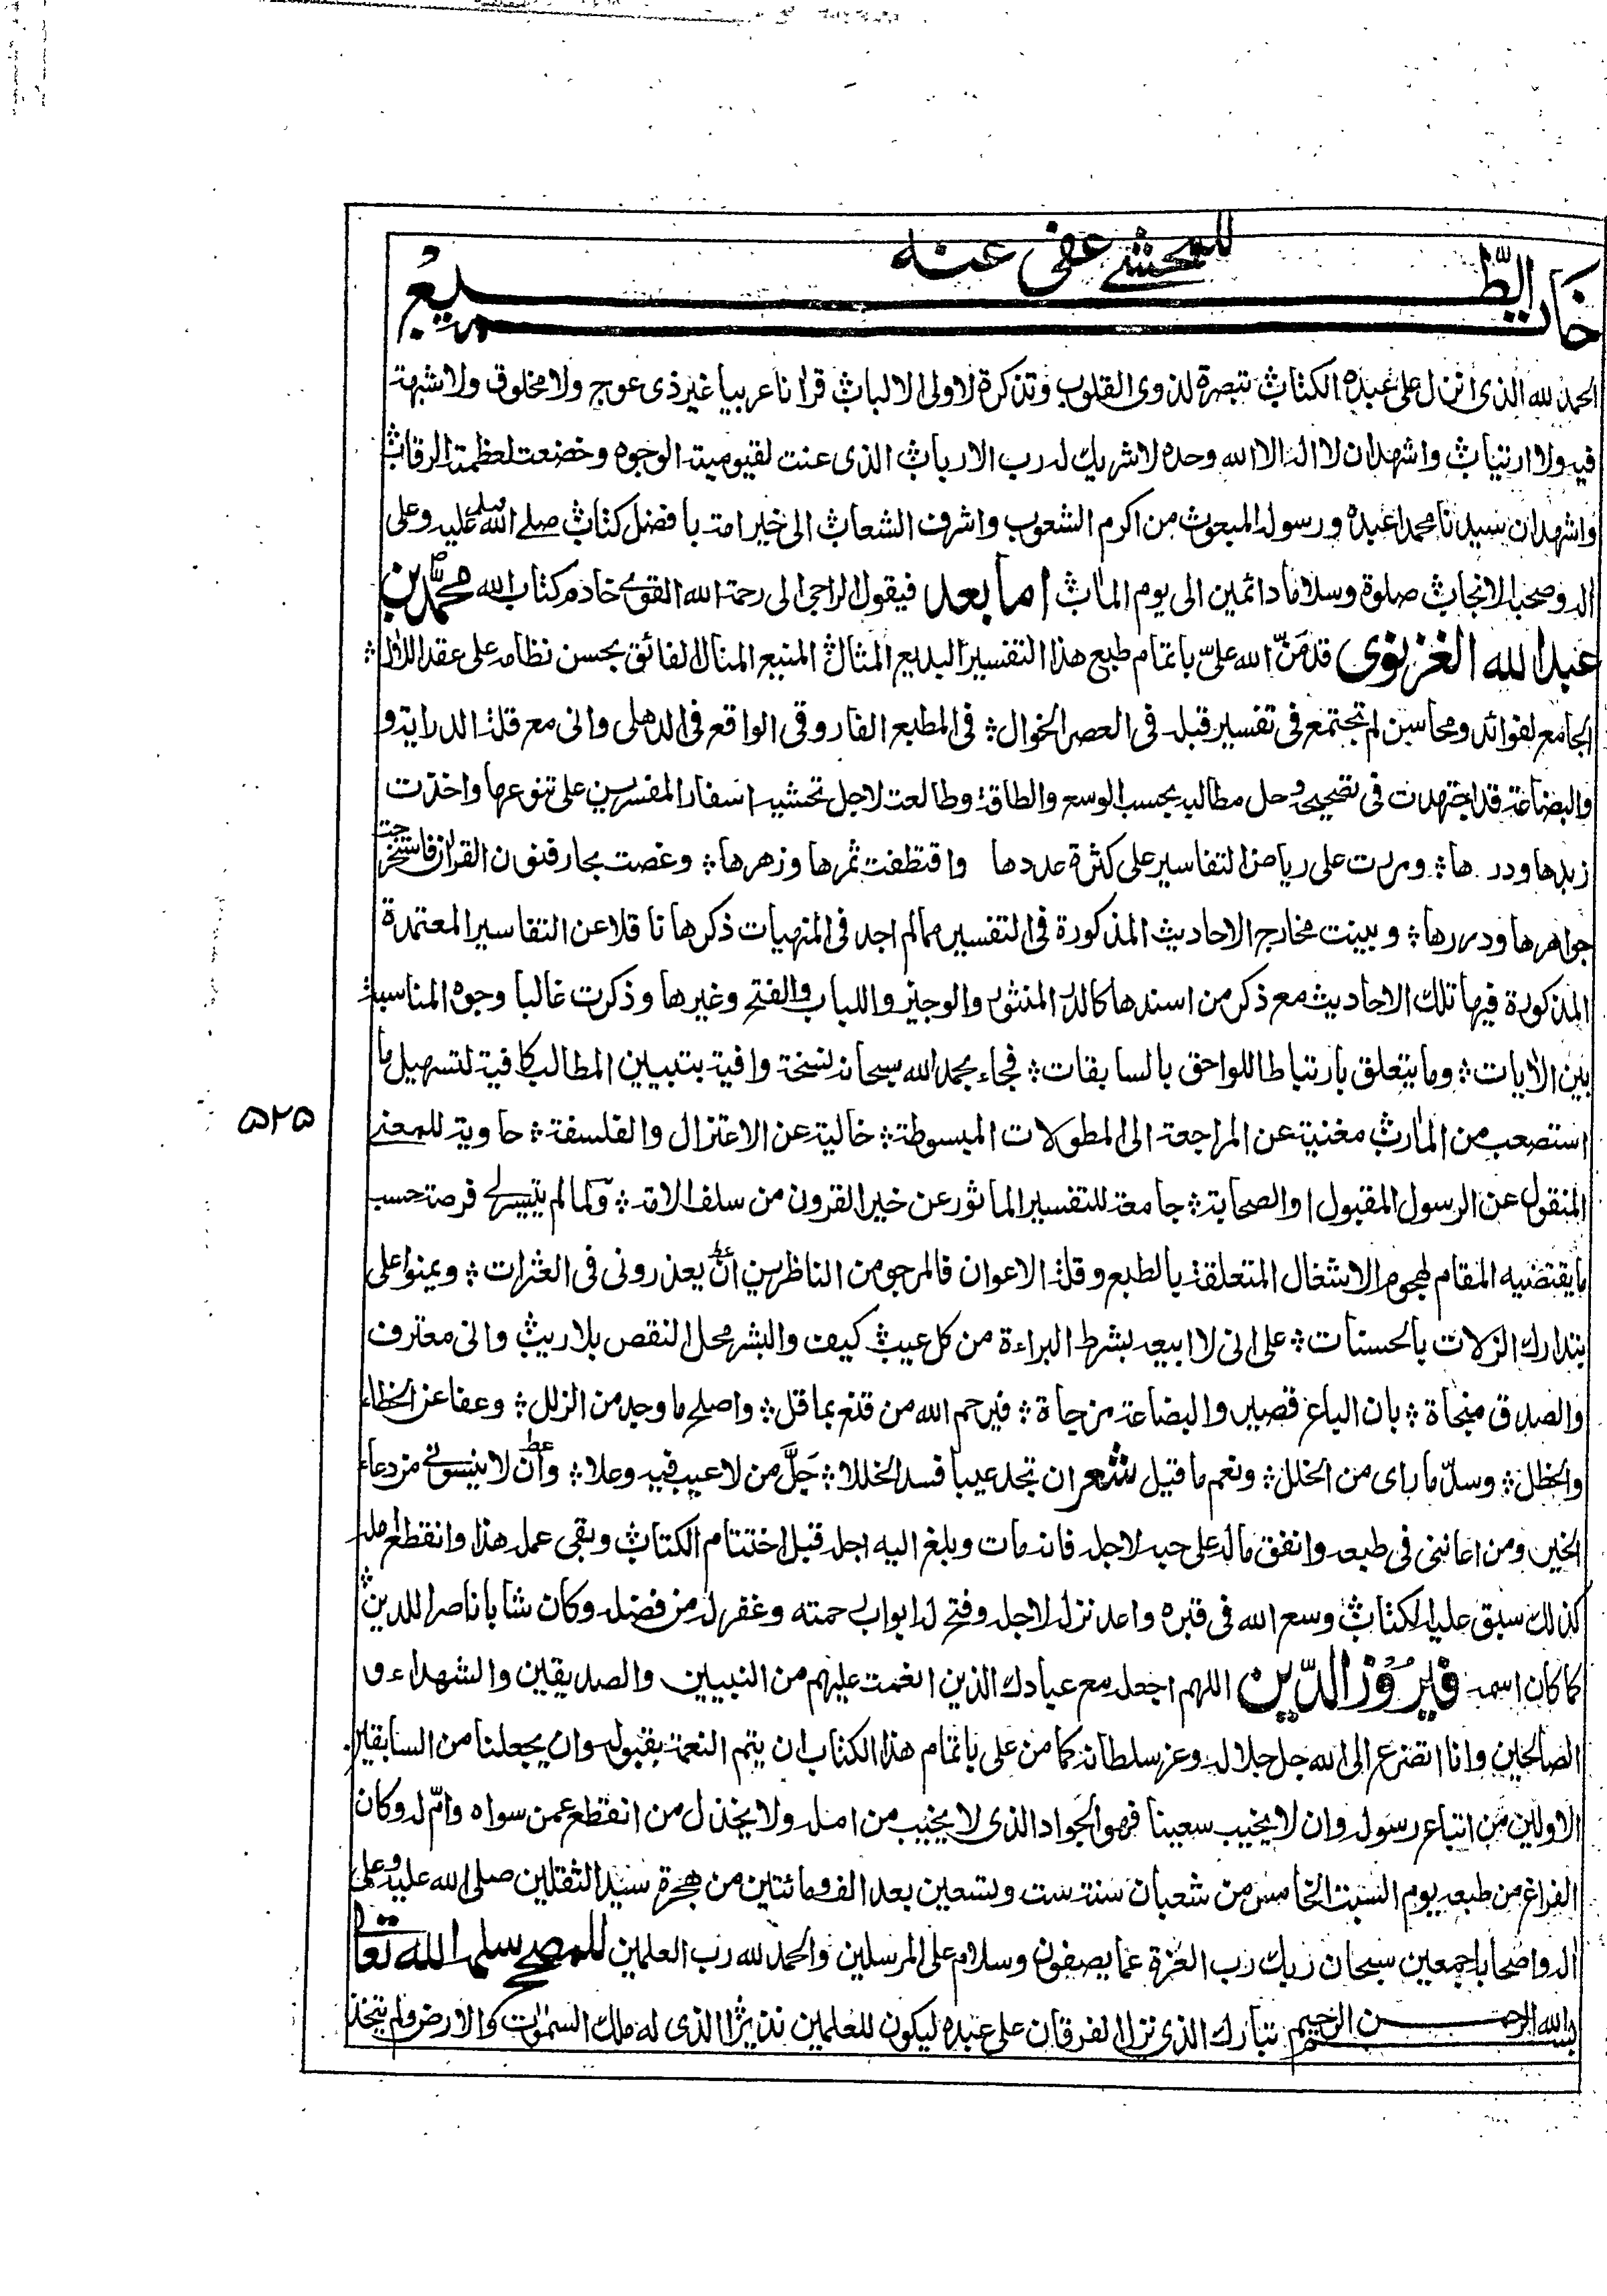 للمحشے عفی عنه
خاتمة الطبع
الحمد لله الذی انزل علی عبده الکتاب؞ تبصرة لذوی القلوب وتذکرة لاولی الالباب؞ قرانا عربیا غیر ذی عوج ولا مخلوق ولا شبهة
فیه ولا ارتیاب؞ واشهد ان لا اله الا الله وحده لا شریك له رب الارباب؞ الذی عنت لقیومیته الوجوه وخضعت لعظمته الرقاب؞
واشهد ان سیدنا محمدا عبده ورسوله المبعوث من اکرم الشعوب واشرف الشعاب؞ الی خیر امة بافضل کتاب؞ صلے الله علیه وعلی
اله وصحبه الانجاب؞ صلوة وسلاما دائمین الی یوم الماٰب؞ اما بعد فیقول الراجی الی رحمة الله القوے خادم کتاب الله محمد بن
عبد الله الغزنوی قد مَنّ الله علیّ باتمام طبع هذا التفسیر البدیع المثال؞ المنیع المنال الفائق بحسن نظامه علی عقد اللاٰل؞
الجامع لفوائد ومحاسن لم تجتمع فی تفسیر قبله فی العصر الخوال؞ فی المطبع الفاروقی الواقع فی الدهلی وانی مع قلة الدرایة و
والبضاعة قد اجتهدت فی تصحیحه وحل مطالبه بحسب الوسع والطاقة وطالعت لاجل تحشیه اسفار المفسرین علی تنوعها واخذت
زبدها ودر ها؞ ومررت علی ریاض التفاسیر علی کثرة عددها واقتطفت ثمرها وزهرها؞ وغصت بحار فنون القراٰن فاستخرجت
جواهرها ودررها؞ وبینت مخارج الاحادیث المذکورة فی التفسیر مما لم اجد فی المنهیات ذکرها ناقلا عن التفاسیر المعتمدة
المذکورة فیها تلك الاحادیث مع ذکر من اسندها کالدر المنثور والوجیز واللباب والفتح وغیرها وذکرت غالبا وجوه المناسبة
بین الاٰیات؞ وما یتعلق بارتباط اللواحق بالسابقات؞ فجاء بحمد الله سبحانه نسخة وافیة بتبیین المطالب کافیة لتسهیل ما
استصعب من الماٰرب؞ مغنیة عن المراجعة الی المطولات المبسوطة؞ خالیة عن الاعتزال والفلسفة؞ حاویة للمعنے
المنقول عن الرسول المقبول والصحابة؞ جامعة للتفسیر الماثور عن خیر القرون من سلف الامة؞ ولما لم یتیسر لے فرصة حسب
ما یقتضیه المقام لهجوم الاشغال المتعلقة بالطبع وقلة الاعوان فالمرجو من الناظرین ان یعذرونی فی العثرات؞ ویمنوا علی
بتدارك الزلات بالحسنات؞ علی انی لا ابیعه بشرط البراءة من کل عیب؞ کیف والبشر محل النقص بلا ریب؞ وانی معترف
والصدق منجاة؞ بان الباع قصیر والبضاعة مزجاة؞ فیرحم الله من قنع بما قل؞ واصلح ما وجد من الزلل؞ وعفا عن الخطاء
والخطل؞ وسدّ ما رای من الخلل؞ ونعم ما قیل شعر ان تجد عیبا فسد الخللا؞ جَلَّ من لا عیب فیه وعلا؞ وان لا ینسونے من دعاء
الخیر ومن اعاننی فی طبعه وانفق ماله علی حبه لاجله فانه مات وبلغ الیه اجله قبل اختتام الکتاب؞ وبقی عمله هذا وانقطع امله
کذلك سبق علیه الکتاب؞ وسع الله فی قبره واعد نزله لاجله وفتح له ابواب رحمته وغفر له من فضله وکان شابا ناصرا للدین؞
کما کان اسمه فیروز الدّین اللهم اجعله مع عبادك الذین انعمت علیهم من النبیین والصدیقین والشهداء و
الصالحین وانا اتضرع الی الله جل جلاله وعز سلطانه کما من علی باتمام هذا الکتاب ان یتم النعمة بقبوله وان یجعلنا من السابقین
الاولین من اتباع رسوله وان لا یخیب سعینا فهو الجواد الذی لا یخیب من امله ولا یخذل من انقطع عمن سواه وامّ له وکان
الفراغ من طبعه یوم السبت الخامس من شعبان سنة ست وتسعین بعد الف ومائتین من هجرة سید الثقلین صلی الله علیه وعلی
اله واصحابه اجمعین سبحان ربك رب العزة عما یصفون وسلام علی المرسلین والحمد لله رب العلمین للمصحح سلمه الله تعالے
بسم الله الرحمن الرحیم تبارك الذی نزل الفرقان علی عبده لیکون للعلمین نذیرا الذی له ملك السموٰت والارض ولم یتخذ
۵۲۵